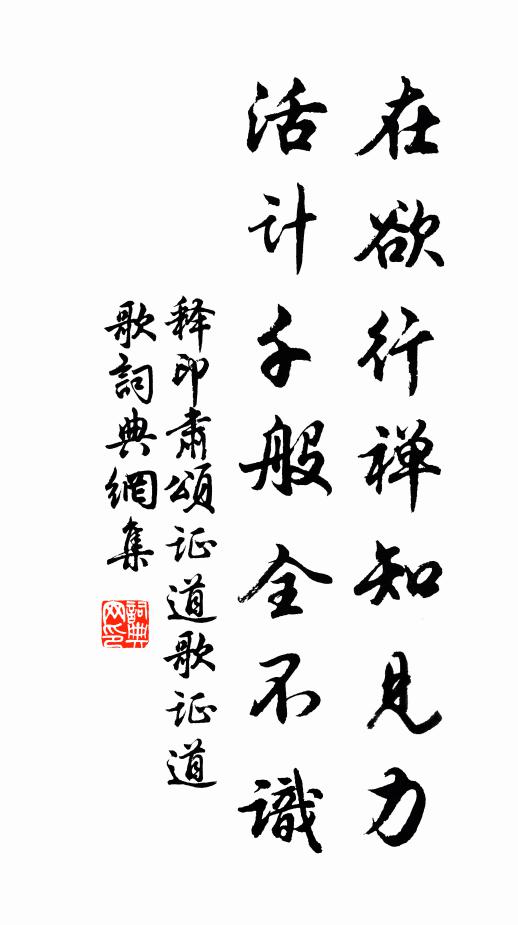 在欲行禅知見力
活计千般全不識
释印肃頌证道歌证道
歌詞典網集
詞典
网印